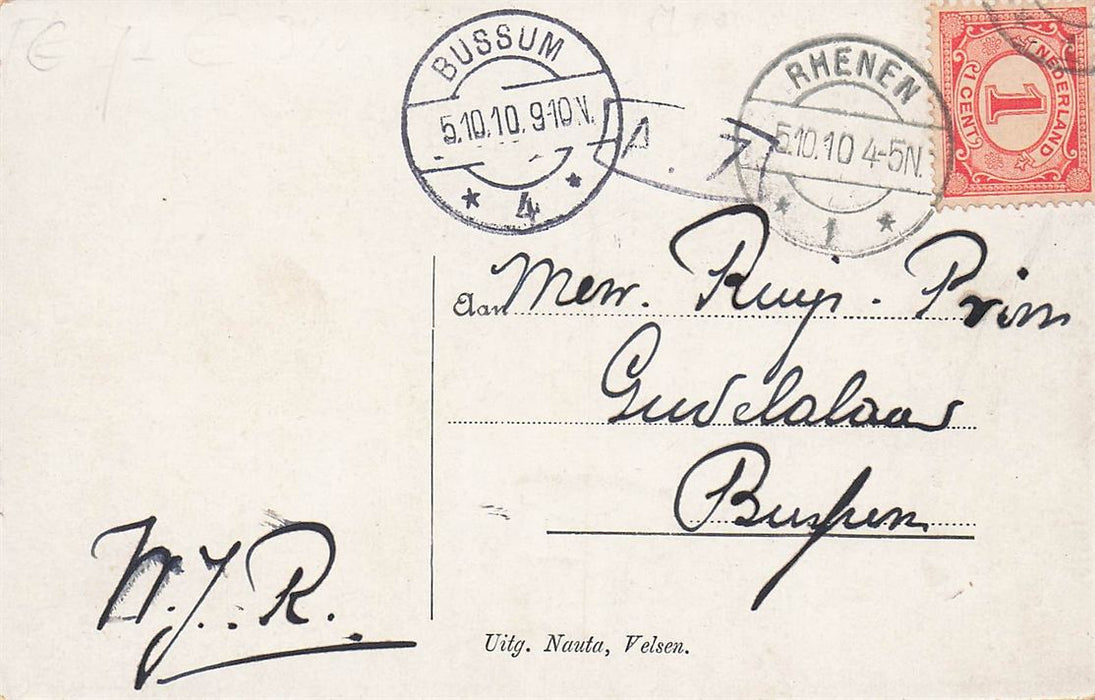 BUSSUM
5.10.10. 9-10 V.
4
RHENEN
5.10.10 4-5N.
1
NEDERLAND
1
1 CENT
Aan Mevr. Ruijs. Prim
Bussum
W.J.R.
Uitg. Nauta, Velsen.